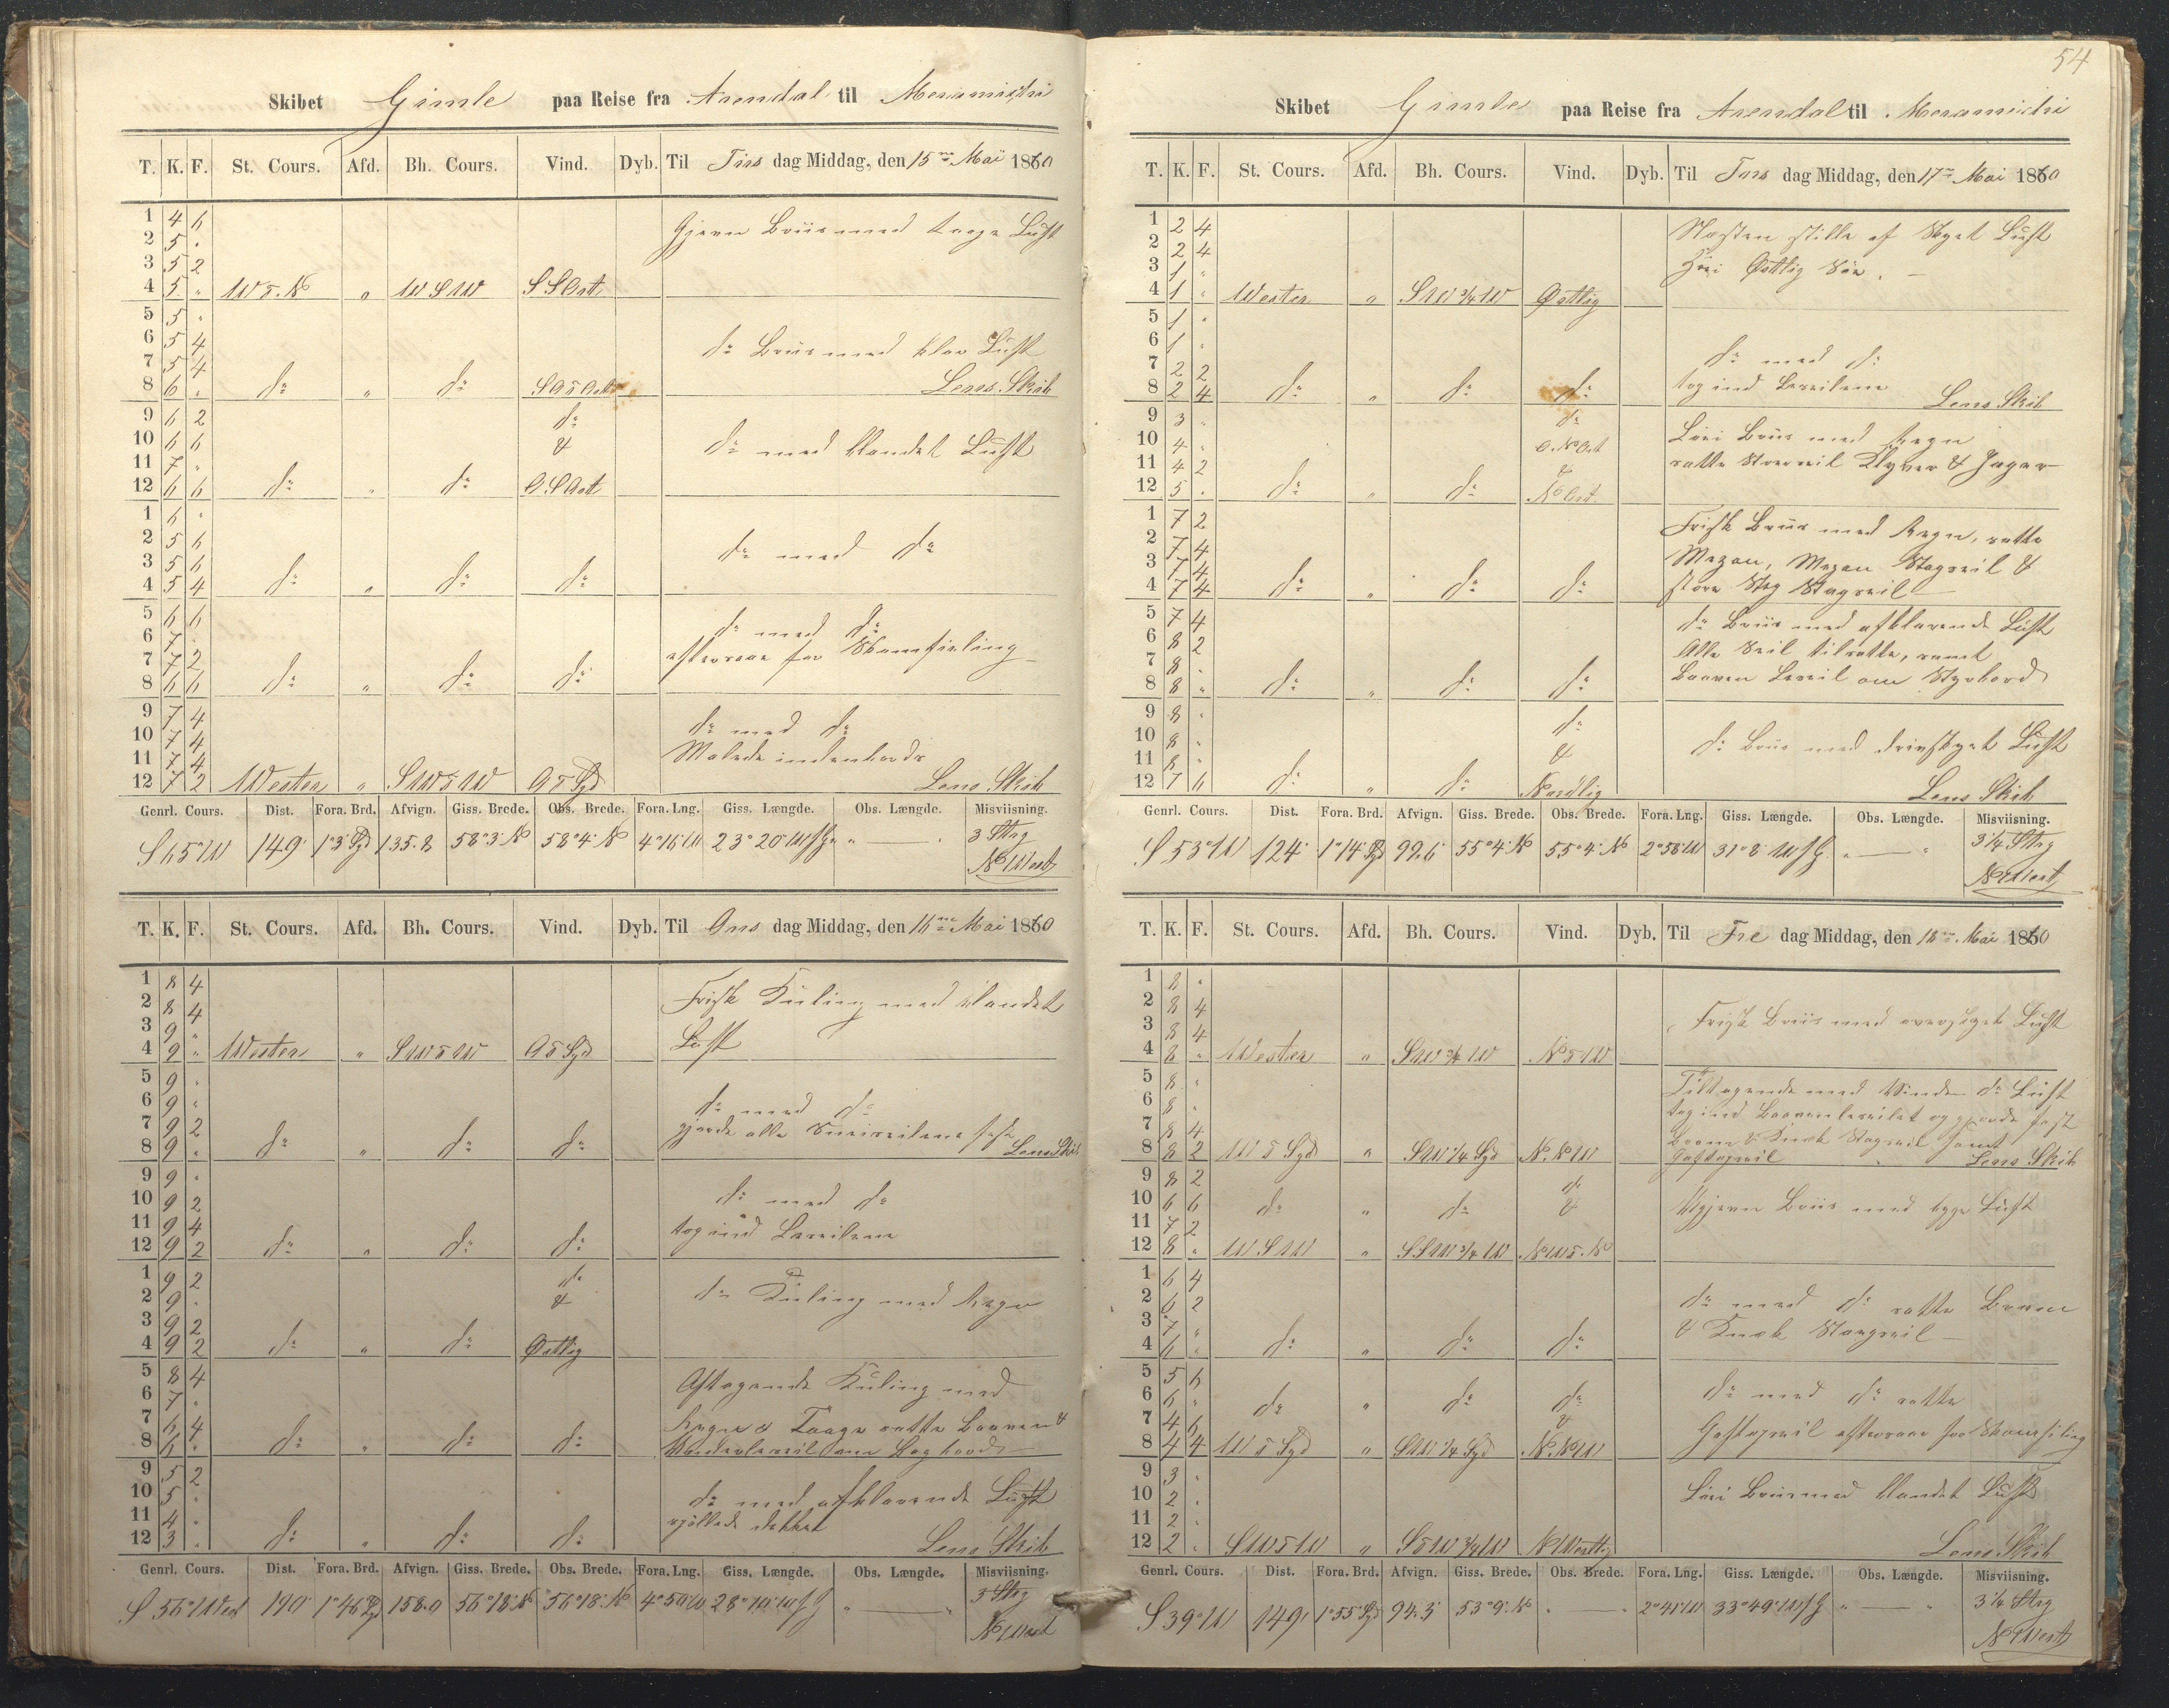 54
Skibet Gimle paa Reise fra Arendal til Meramichi
T. K. F. St. Cours. Afd. Bh. Cours. Vind. Dyb. Til Tirs dag Middag, den 15de Mai 1860
1 4 6 Gjevn Briis med Luft
2 5 "
3 5 2
4 5 " W t. N " WSW SSOst
5 5 "
6 5 4 do Briis med klar Luft
7 5 4
8 6 " do " do Lens Skib
9 6 2 do
10 6 6 & do med blandet Luft
11 7 "
12 6 6 do " do OSOst
1 6 "
2 5 6 do med do
3 5 6
4 5 4 do " do do
5 6 6
6 7 " do med do
7 7 2 eftersaae for Skamfieling
8 6 6 do " do do
9 7 4
10 7 4 do med do
11 7 4 Malede indenbords
12 7 2 Wester " SWtW OtSyd Lens Skib
Genrl. Cours. Dist. Fora. Brd. Afvign. Giss. Brede. Obs. Brede. Fora. Lng. Giss. Længde. Obs. Længde. Misviisning.
S 65° W 149' 1°3' Syd 135.8 58°3' N 58°4' N 4°16' W 23°20' W f G " — " 3 Streg
N West
T. K. F. St. Cours. Afd. Bh. Cours. Vind. Dyb. Til Ons dag Middag, den 16de Mai 1860
1 8 4 Frisk Kuling med blandet
2 8 4
3 9 " Luft
4 9 " Wester " SWtW OtSyd
5 9 "
6 9 " do med do
7 9 2 gjorde alle fast
8 9 " do " do do Lens Skib
9 9 "
10 9 2 do med do
11 9 4 tog ind Læseilene
12 9 2 do " do do
1 9 2 do
2 9 " & do Kuling med Regn
3 9 2
4 9 2 do " do Østlig
5 8 4 Aftagende Kuling med
6 7 "
7 6 4 Regn & Taage satte Boaven &
8 6 " do " do do Underlæseil om Bagbord
9 5 2
10 5 " do med afklarende Luft
11 4 " dekket
12 3 " do " do do Lens Skib
Genrl. Cours. Dist. Fora. Brd. Afvign. Giss. Brede. Obs. Brede. Fora. Lng. Giss. Længde. Obs. Længde. Misviisning.
S 56° West 190' 1°46' Syd 158.0 56°18' N 56°18' N 4°50' W 28°10' W f G " — " 3 Streg
N West
Skibet Gimle paa Reise fra Arendal til Meramichi
T. K. F. St. Cours. Afd. Bh. Cours. Vind. Dyb. Til Tors dag Middag, den 17de Mai 1860
1 2 4 Næsten stille af Skyet Luft
2 2 4
3 1 " Høi Østlig Søe.
4 1 " Wester " SW 3/4 W Østlig
5 1 "
6 1 " do med do
7 2 2 tog ind Læseilene
8 2 4 do " do do Lens Skib
9 3 " do Løri Briis med Regn
10 4 " O.N.Ost
11 4 2 & satte Storseil Klyver & Jager
12 5 " do " do NOst.
1 7 2 Frisk Briis med Regn, satte
2 7 4 Mezan, Mezan Stagseil &
3 7 4
4 7 4 do " do do store Steg Stagseil
5 7 4 do Briis med afklarende Luft
6 8 2 Alle Seil tilsatte, samt
7 8 " Boaven Læseil om Styrbord
8 8 " do " do do
9 8 " do
10 8 " & do Briis med drivskyet Luft
11 8 "
12 7 6 do " do Nordlig Lens Skib
Genrl. Cours. Dist. Fora. Brd. Afvign. Giss. Brede. Obs. Brede. Fora. Lng. Giss. Længde. Obs. Længde. Misviisning.
S 53° W 124' 1°14' Syd 99.6 55°4' N 55°4' N 2°56' W 31°8' W f G " — " 3 1/4 Streg
N West
T. K. F. St. Cours. Afd. Bh. Cours. Vind. Dyb. Til Fre dag Middag, den 18de Mai 1860
1 8 "
2 8 4 Frisk Briis med Luft
3 8 4
4 8 " Wester " SW 3/4 W NtW
5 8 " Tiltagende med Vinden do Luft
6 8 " tog ind Boavenlæseilet og gjorde fast
7 8 4 Stagseil samt
8 8 2 W t Syd " SW 1/4 Syd N.NW Gaftopseil Lens Skib
9 8 2 do
10 6 6 do " do & Ugjevn Briis med bygge Luft
11 7 2
12 8 " WSW " SSW 3/4 W NWt.N
1 6 4
2 6 2 do med do satte
3 7 " & Stagseil
4 6 " do " do do
5 5 6 do med do satte
6 6 " do " do do
7 4 6 & Gaftopseil eftersaae for Skamfiling
8 4 4 W t Syd " SW 1/4 Syd N.NW
9 3 "
10 2 " Løri Briis med blandet Luft
11 2 "
12 2 " SWtW " StW 3/4 W N Westlig Lens Skib
Genrl. Cours. Dist. Fora. Brd. Afvign. Giss. Brede. Obs. Brede. Fora. Lng. Giss. Længde. Obs. Længde. Misviisning.
S 39° W 149' 1°55' Syd 94.3 53°9' N " — " 2°41' W 33°49' W f G " — " 3 1/4 Streg
N West